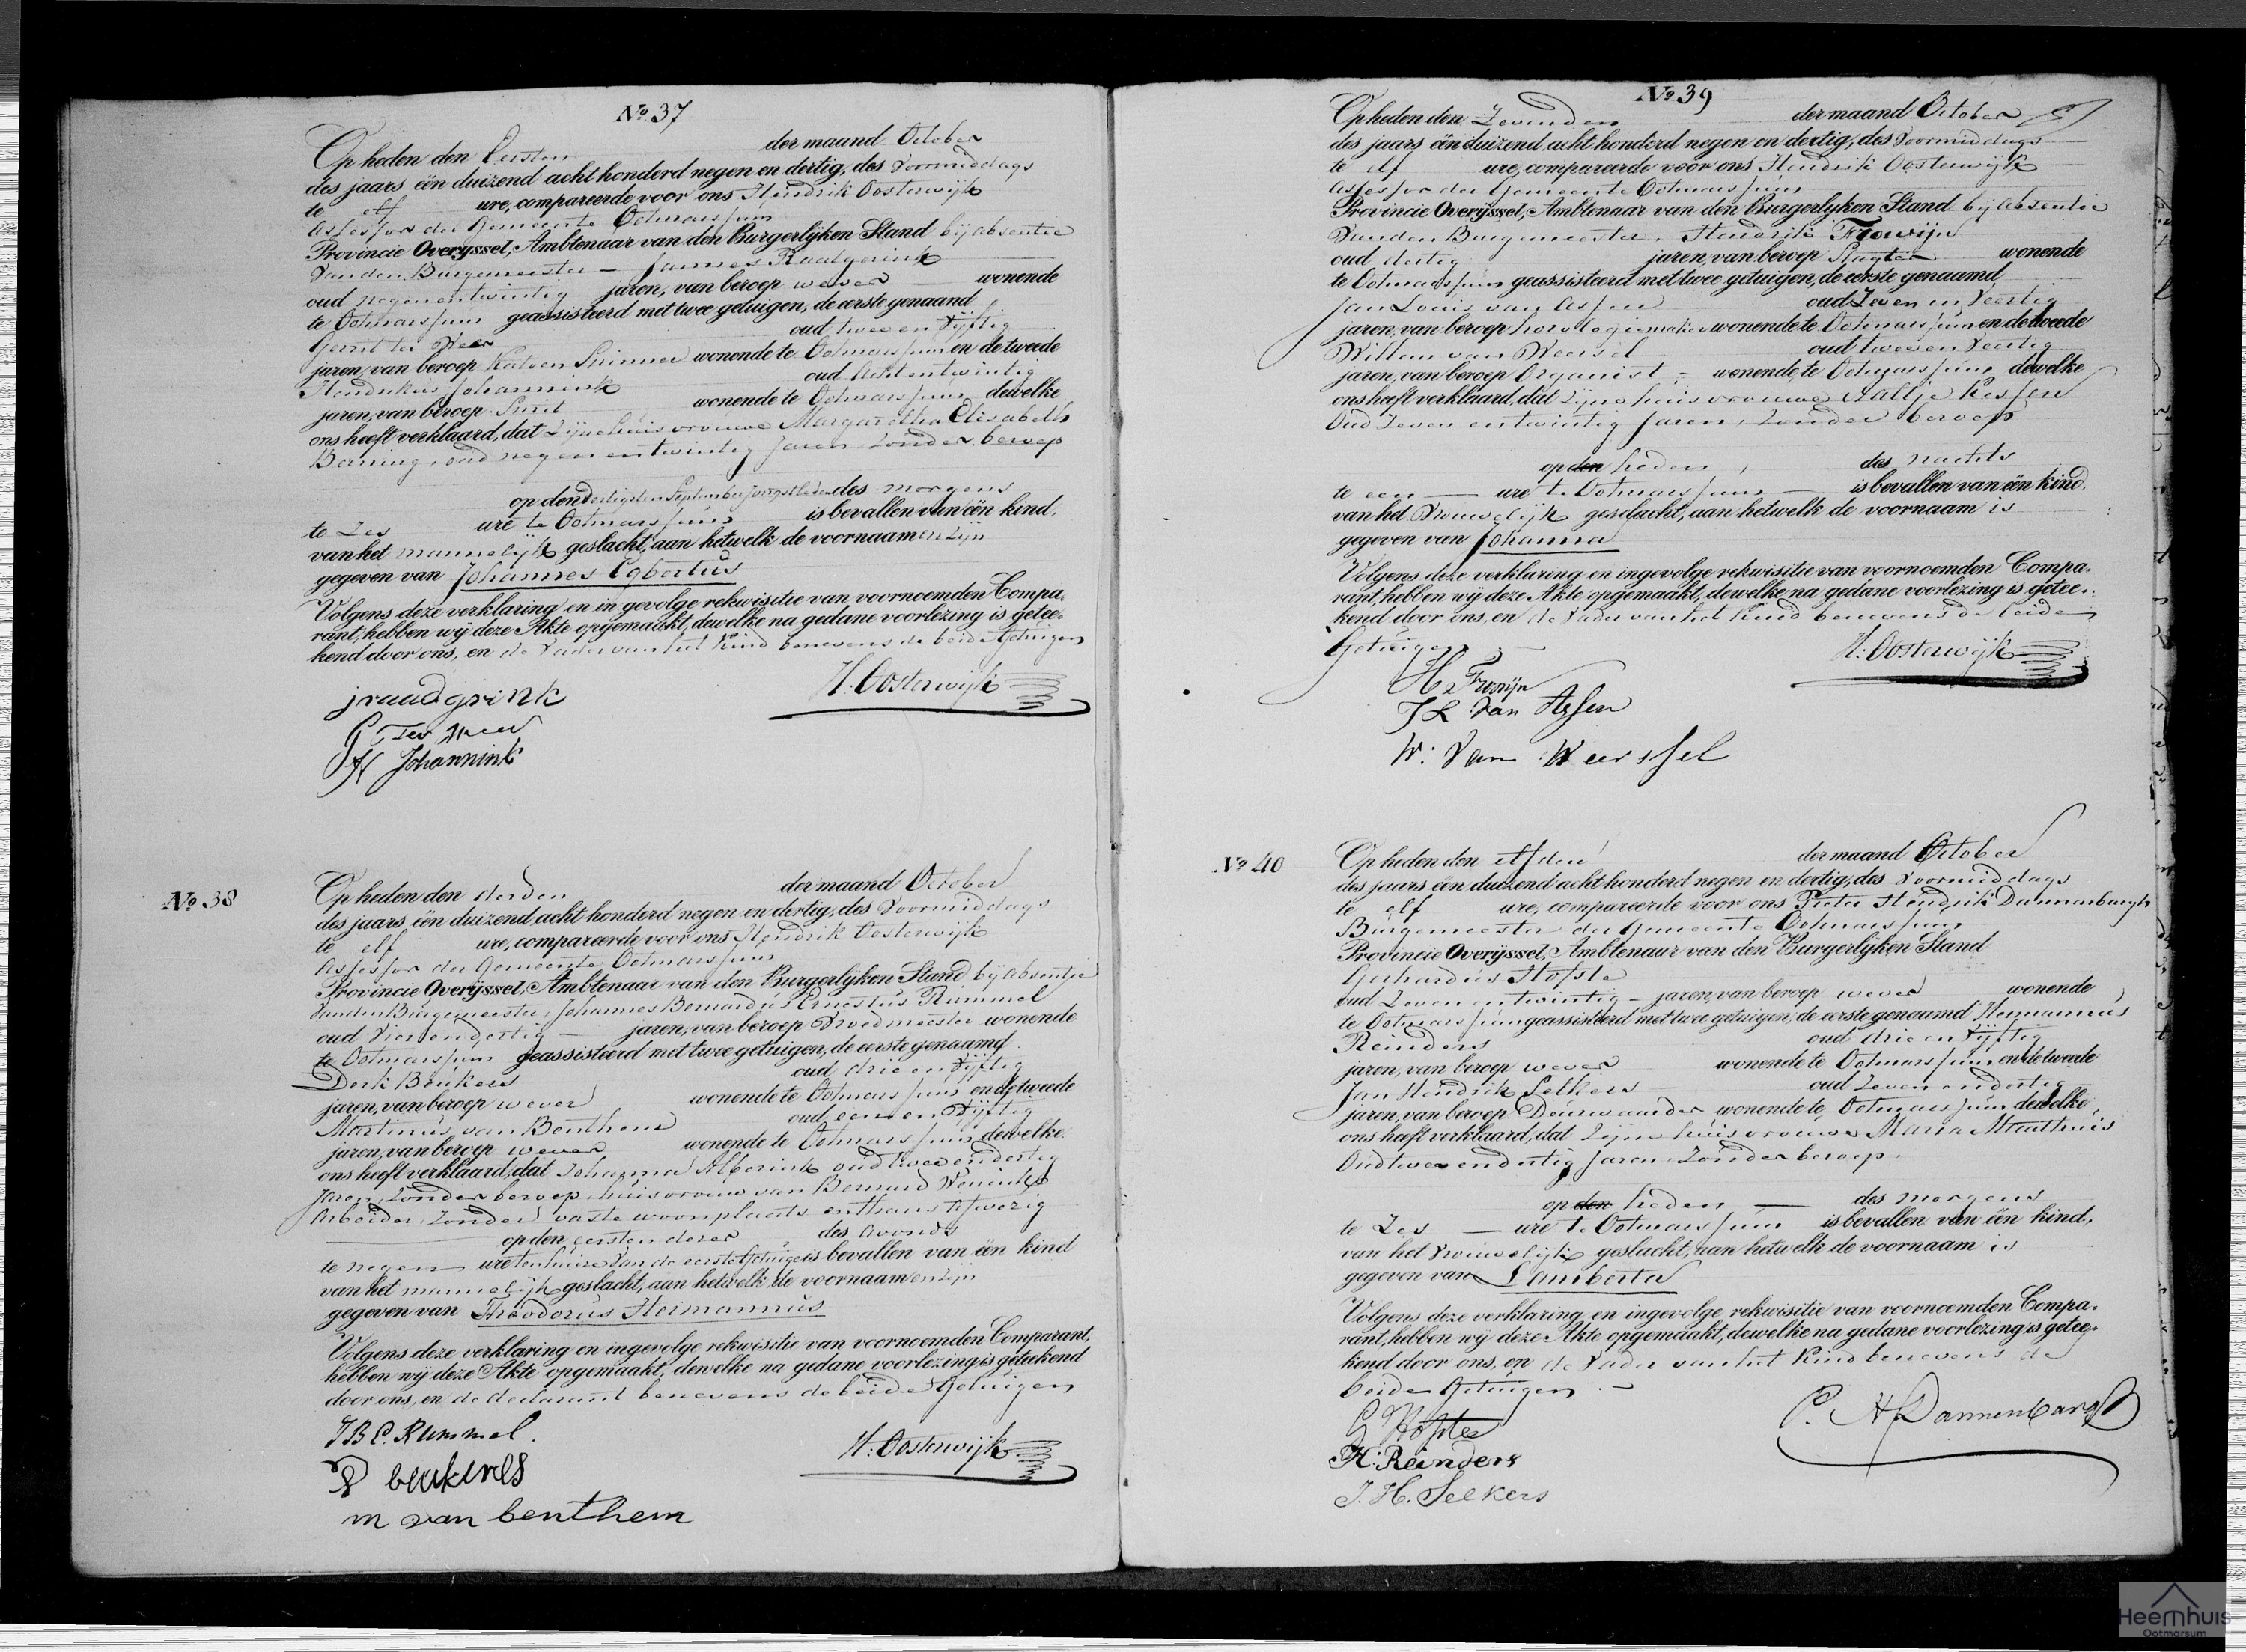 Nº 37
Op heden den Eersten der maand October
des jaars één duizend acht honderd negen en dertig, des Voormiddags
te elf ure, compareerde voor ons Hendrik Oosterwijk
Assessor der Gemeente Ootmarssum
Provincie Overijssel, Ambtenaar van den Burgerlijken Stand bij absentie
Van den Burgemeester – Jannes Raadgerink
oud negenentwintig jaren, van beroep wever wonende
te Ootmarssum geassisteerd met twee getuigen, de eerste genaamd
Gerrit ter Weer oud twee en Vijftig
jaren, van beroep Katoen Spinner wonende te Ootmarssum en de tweede
Hendrikus Johannink oud Achtentwintig
jaren, van beroep Smit wonende te Ootmarssum dewelke
ons heeft verklaard, dat Zijne huisvrouwe Margaretha Elisabeth
Berning, oud negenentwintig Jaren Zonder beroep
op den dertigsten September jongstleden des morgens
te Zes ure te Ootmarssum is bevallen van één kind,
van het mannelijk geslacht, aan hetwelk de voornaamen zijn
gegeven van Johannes Egbertus
Volgens deze verklaring en in gevolge rekwisitie van voornoemden Compa-
rant, hebben wij deze Akte opgemaakt, dewelke na gedane voorlezing is getee-
kend door ons, en de Vader van het Kind benevens de beide Getuigen
jraadgrink H. Oosterwijk
G Ter Weer
H Johannink
Nº 38
Op heden den derden der maand October
des jaars één duizend acht honderd negen en dertig, des Voormiddags
te elf ure, compareerde voor ons Hendrik Oosterwijk
Assessor der Gemeente Ootmarssum
Provincie Overijssel, Ambtenaar van den Burgerlijken Stand bij absentie
Van den Burgemeester, Johannes Bernardus Ernestus Rummel
oud Vierendertig – jaren, van beroep Vroedmeester wonende
te Ootmarssum geassisteerd met twee getuigen, de eerste genaamd
Derk Beukers oud drie en Vijftig
jaren, van beroep wever wonende te Ootmarssum en de tweede
Martinus van Benthem oud een en Vijftig
jaren, van beroep wever wonende te Ootmarssum dewelke
ons heeft verklaard, dat Johanna Alferink oud twee en dertig
Jaren, Zonder beroep huisvrouw van Bernard Wenink
Arbeider, Zonder vaste woonplaats, enthans Afwezig
op den eersten dezer des avonds
te negen ure ten huize van de eerste Getuige is bevallen van één kind
van het mannelijk geslacht, aan hetwelk de voornaamen zijn
gegeven van Theodorus Hermannus
Volgens deze verklaring en ingevolge rekwisitie van voornoemden Comparant,
hebben wij deze Akte opgemaakt, dewelke na gedane voorlezing is geteekend
door ons, en de declarant benevens de beide Getuigen
J B E. Rummel.
H. Oosterwijk
D beukers
m van benthem
Nº 39
Op heden den Zevenden der maand October
des jaars één duizend acht honderd negen en dertig, des Voormiddags
te elf ure, compareerde voor ons Hendrik Oosterwijk
Assessor der Gemeente Ootmarssum
Provincie Overijssel, Ambtenaar van den Burgerlijken Stand bij absentie
Van den Burgemeester. Hendrik Frowijn
oud dertig jaren, van beroep Slagter wonende
te Ootmarssum geassisteerd met twee getuigen, de eerste genaamd
Jan Louis van Assen oud Zeven en Veertig
jaren, van beroep horologiemaker wonende te Ootmarssum en de tweede
Willem van Weersel oud twee en Veertig
jaren, van beroep Organist – wonende te Ootmarssum dewelke
ons heeft verklaard, dat Zijne huisvrouwe Aaltje Kessen
Oud Zeven entwintig Jaren, Zonder beroep
op den heden, des nachts
te een ure te Ootmarssum is bevallen van één kind,
van het Vrouwelijk geslacht, aan hetwelk de voornaam is
gegeven van Johanna
Volgens deze verklaring en ingevolge rekwisitie van voornoemden Compa-
rant, hebben wij deze Akte opgemaakt, dewelke na gedane voorlezing is getee-
kend door ons, en de Vader van het Kind benevens de beide
Getuigen. H. Oosterwijk
H Frowijn
J L Van Assen
W. Van Weerssel
Nº 40
Op heden den elfden der maand October
des jaars één duizend acht honderd negen en dertig, des Voormiddags
te elf ure, compareerde voor ons Pieter Hendrik Dannenbargh
Burgemeester der Gemeente Ootmarssum
Provincie Overijssel, Ambtenaar van den Burgerlijken Stand
Gerhardus Hofste
oud Zeven entwintig – jaren, van beroep wever wonende
te Ootmarssum geassisteerd met twee getuigen, de eerste genaamd Hermannus
Reinders oud drie en Vijftig
jaren, van beroep wever wonende te Ootmarssum en de tweede
Jan Hendrik Selkers oud Zeven en dertig
jaren, van beroep Deurwaarder wonende te Ootmarssum dewelke
ons heeft verklaard, dat Zijne huisvrouwe Maria Maathuis
Oud twee en dertig Jaren, Zonder beroep.
op den heden – des morgens
te Zes – ure te Ootmarssum is bevallen van één kind,
van het Vrouwelijk geslacht, aan hetwelk de voornaam is
gegeven van Lamberta
Volgens deze verklaring en ingevolge rekwisitie van voornoemden Compa-
rant, hebben wij deze Akte opgemaakt, dewelke na gedane voorlezing is getee-
kend door ons, en de Vader van het Kind benevens de
beide Getuigen.
P. H Dannenbargh
G Hofste
H. Reinders
J. H. Selkers
Heemhuis
Ootmarsum